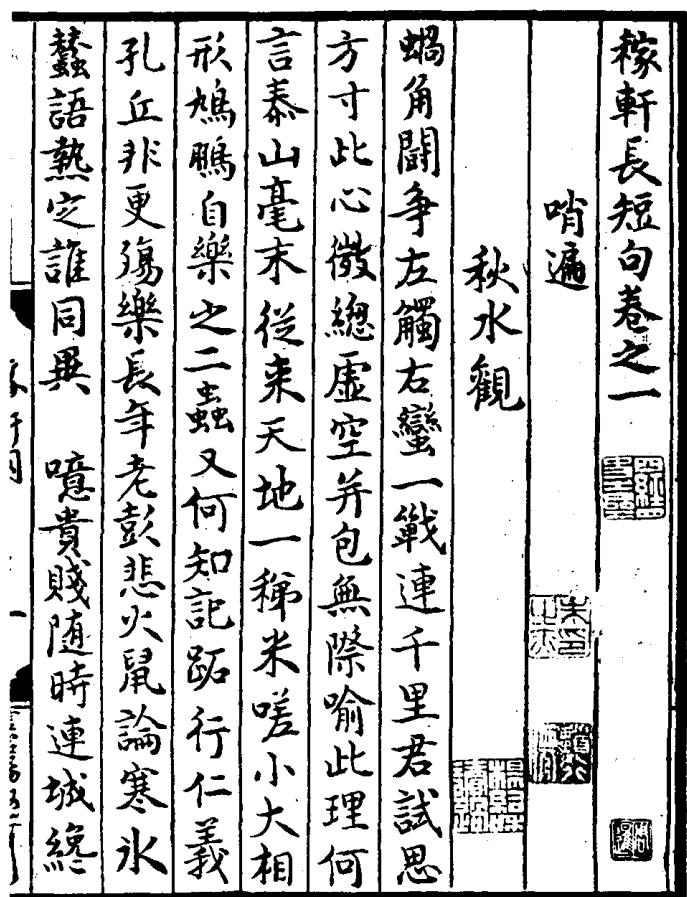 稼軒長短句卷之一
哨遍
秋水觀
蝸角鬭爭左觸右蠻一戰連千里君試思
方寸此心微總虛空并包無際喻此理何
言泰山毫末從來天地一稊米嗟小大相
形鳩鵬自樂之二蟲又何知記跖行仁義
孔丘非更殤樂長年老彭悲火鼠論寒氷
蠶語熱定誰同異　噫貴賤随時連城纔